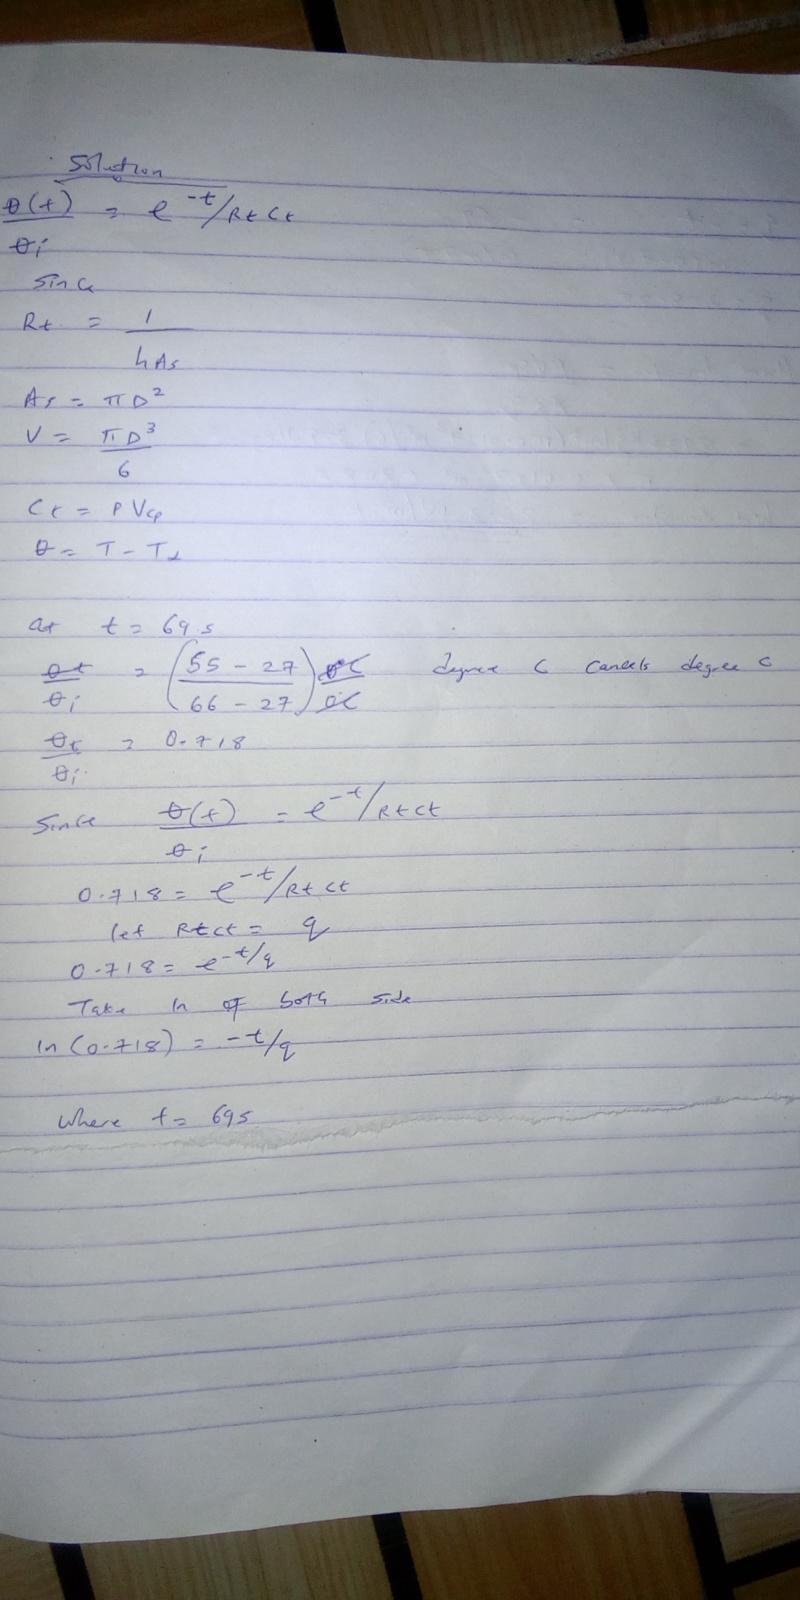 Solution
θ(t) = e^-t/RtCt
θi
Since
Rt = 1
hAs
As = πD²
V = πD³
6
Ct = ρVcp
θ = T - T∞
at t = 69s
θt = (55 - 27) °C degree C cancels degree C
θi (66 - 27) °C
θt = 0.718
θi
Since θ(t) = e^-t/RtCt
θi
0.718 = e^-t/RtCt
let RtCt = q
0.718 = e^-t/q
Take ln of both side
ln(0.718) = -t/q
Where t = 69s